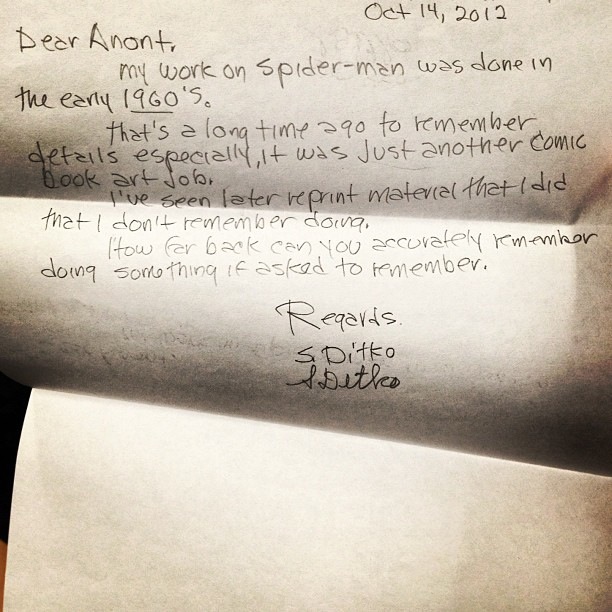 Oct 14, 2012
Dear Anont,
my work on Spider-man was done in
the early 1960's.
that's a long time ago to remember
details especially, it was just another comic
book art job.
I've seen later reprint material that I did
that I don't remember doing.
How far back can you accurately remember
doing something if asked to remember.
Regards.
S. Ditko
S. Ditko